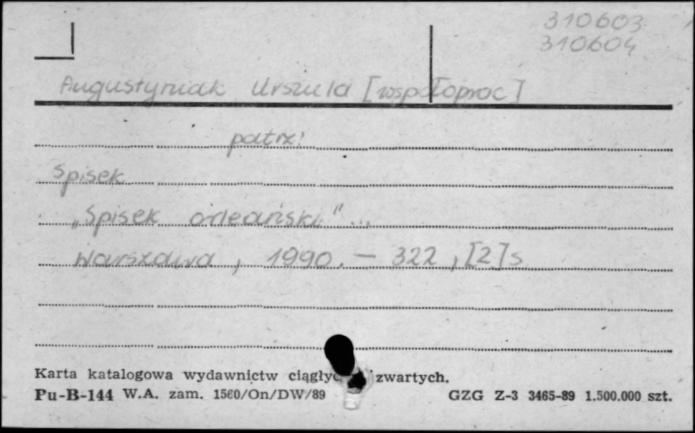 310603
310604
Augustyniak Urszula [współoprac]
patrz:
Spisek
"Spisek orleański" ...
Warszawa, 1990. — 322, [2] s
Karta katalogowa wydawnictw ciągłych zwartych.
Pu-B-144 W.A. zam. 1560/On/DW/89 GZG Z-3 3465-89 1.500.000 szt.